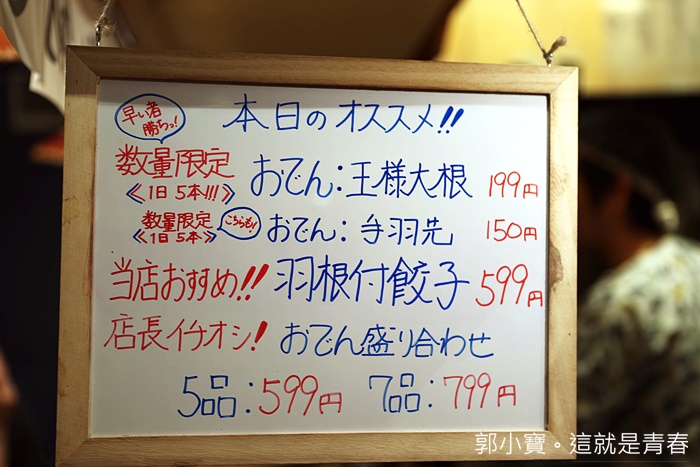 早い者
勝ちっ!
本日のオススメ!!
数量限定
《1日5本!!!》
おでん:王様大根 199円
数量限定
《1日5本》
こちらも!!
おでん:手羽先 150円
当店おすすめ!! 羽根付餃子 599円
店長イチオシ! おでん盛り合わせ
5品:599円 7品:799円
郭小寶。這就是青春